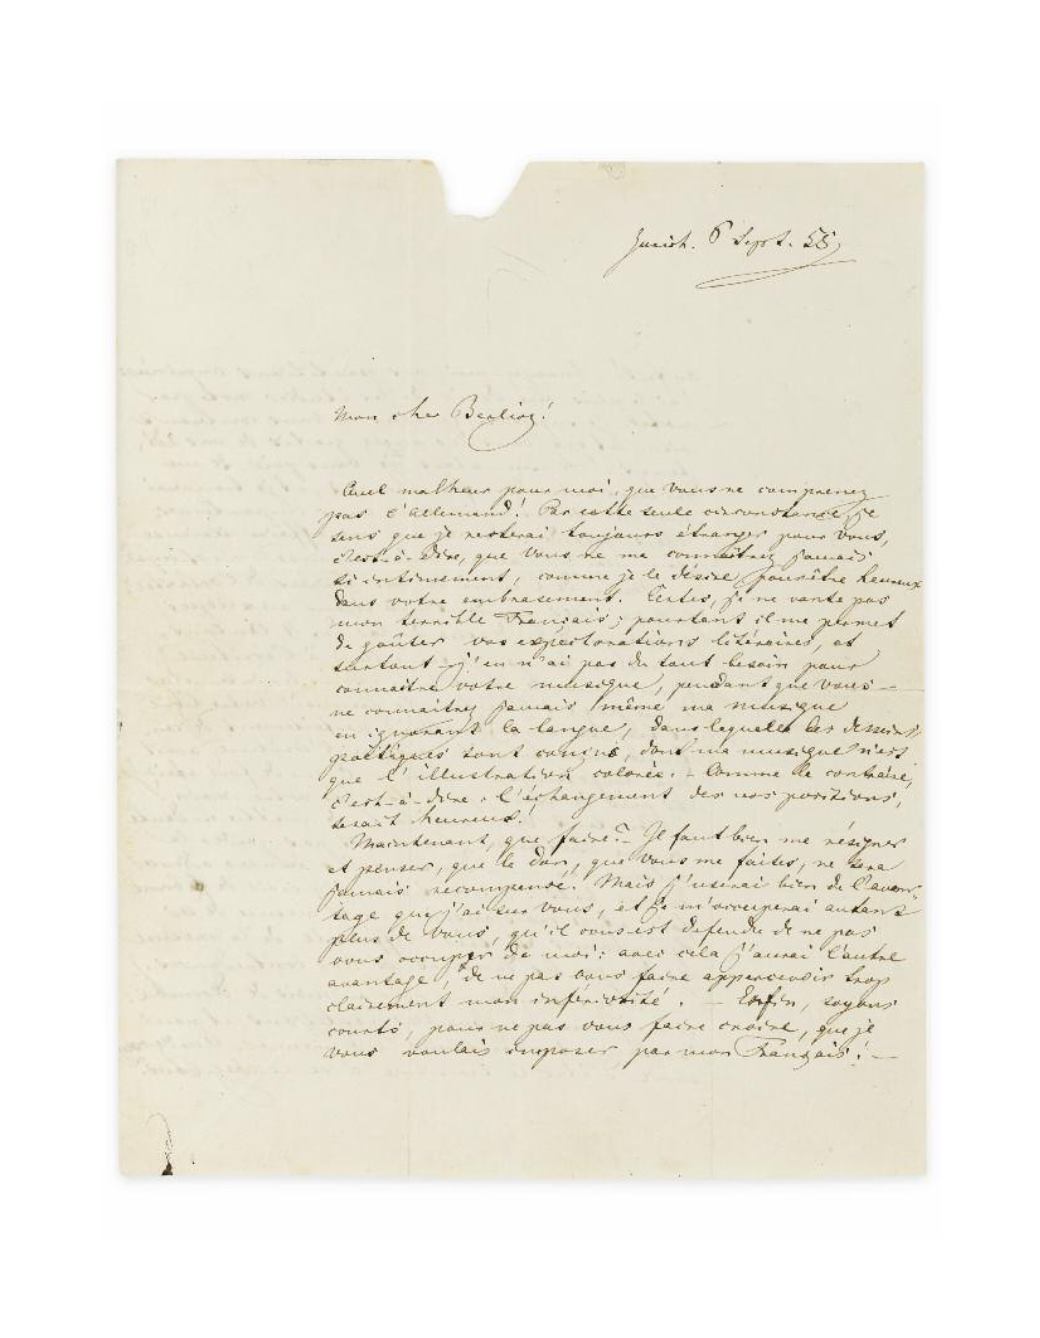 Zurich. 6 Sept. 55
Mon cher Berlioz!
Quel malheur pour moi, que vous ne comprenez
pas l'allemand! Par cette seule circonstance je
sens que je resterai toujours étranger pour vous,
c'est-à-dire, que vous ne me connaitrez jamais
si intimement, comme je le désire pour être heureux
dans votre embrasement. Certes, je ne vante pas
mon terrible Français; pourtant il me permet
de goûter vos expectorations litéraires, et
surtout – j'en n'ai pas du tout besoin pour
connaitre votre musique, pendant que vous –
ne connaitrez jamais même ma musique
en ignorant la langue, dans laquelle les dessins
poëtiques sont conçus, dont ma musique n'est
que l'illustration colorée. – Comme le contraire,
c'est-à-dire: l'échangement des nos positions,
serait heureux!
Maintenant, que faire? – Il faut bien me résigner
et penser, que le don, que vous me faites, ne sera
jamais recompensé. Mais j'userai bien de l'avan-
tage que j'ai sur vous, et je m'occuperai autant
plus de vous, qu'il vous est defendu de ne pas
vous occuper de moi: avec cela j'aurai l'autre
avantage, de ne pas vous faire appercevoir trop
clairement mon infériorité. – Enfin, soyons
courts, pour ne pas vous faire croire, que je
vous voulais imposer par mon Français! –